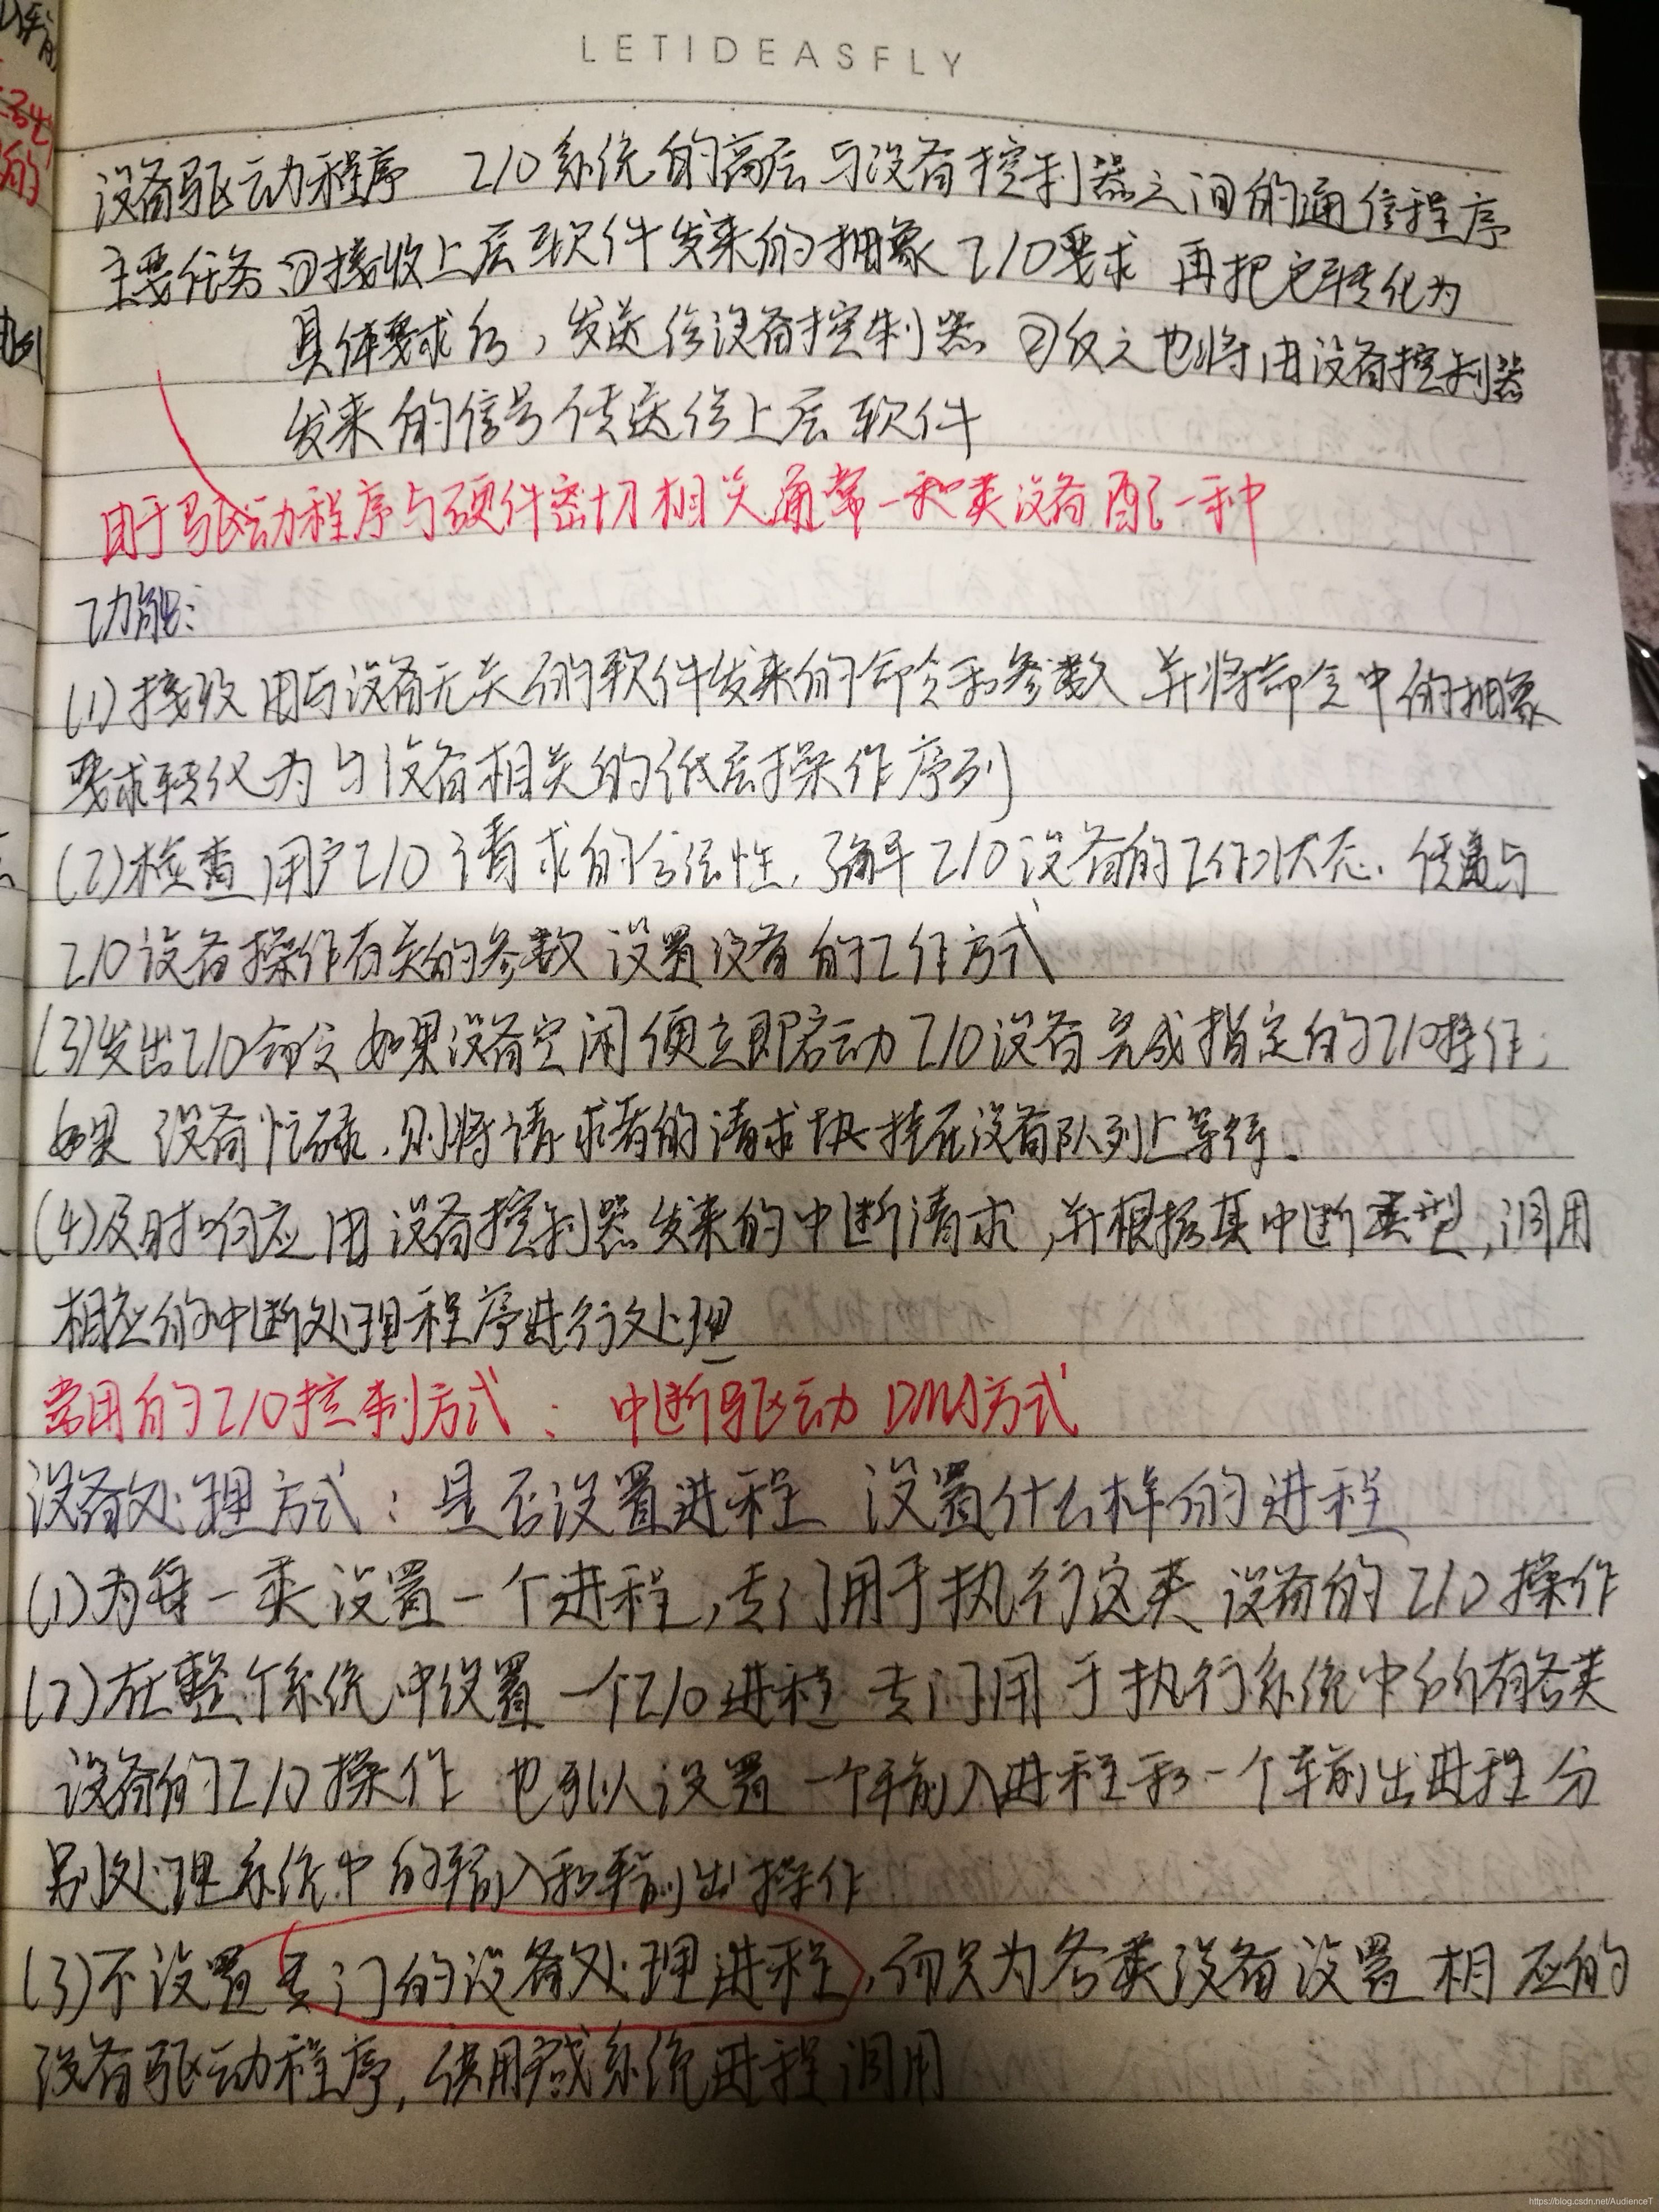 LETIDEASFLY
设备驱动程序 I/O系统的高层与设备控制器之间的通信程序
主要任务 ①接收上层软件发来的抽象I/O要求 再把它转化为
具体要求后，发送给设备控制器 ②反之也将由设备控制器
发来的信号传送给上层软件
由于驱动程序与硬件密切相关 通常一种类设备配一种
功能：
(1)接收用与设备无关的软件发来的命令和参数 并将命令中的抽象
要求转化为与设备相关的低层操作序列
(2)检查用户I/O请求的合法性，了解I/O设备的工作状态、传递与
I/O设备操作有关的参数 设置设备的工作方式
(3)发出I/O命令 如果设备空闲便立即启动I/O设备完成指定的I/O操作；
如果设备忙碌，则将请求者的请求块挂在设备队列上等待.
(4)及时响应由设备控制器发来的中断请求，并根据其中断类型，调用
相应的中断处理程序进行处理
常用的I/O控制方式： 中断驱动 DMA方式
设备处理方式：是否设置进程 设置什么样的进程
(1)为每一类设置一个进程，专门用于执行这类设备的I/O操作
(2)在整个系统中设置一个I/O进程 专门用于执行系统中所有各类
设备的I/O操作 也可以设置一个输入进程和一个输出进程 分
别处理系统中的输入和输出操作
(3)不设置专门的设备处理进程，而只为各类设备设置相应的
设备驱动程序，供用户或系统进程调用
https://blog.csdn.net/AudienceT